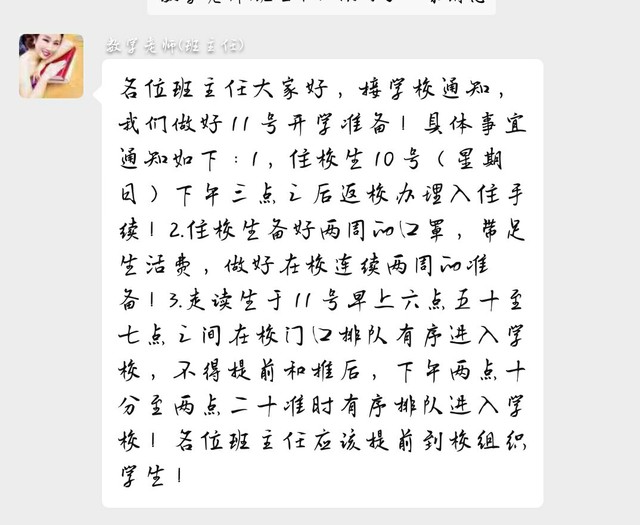 数学老师(班主任)
各位班主任大家好，接学校通知，
我们做好11号开学准备！具体事宜
通知如下：1，住校生10号（星期
日）下午三点之后返校办理入住手
续！2.住校生备好两周的口罩，带足
生活费，做好在校连续两周的准
备！3.走读生于11号早上六点五十至
七点之间在校门口排队有序进入学
校，不得提前和推后，下午两点十
分至两点二十准时有序排队进入学
校！各位班主任应该提前到校组织
学生！